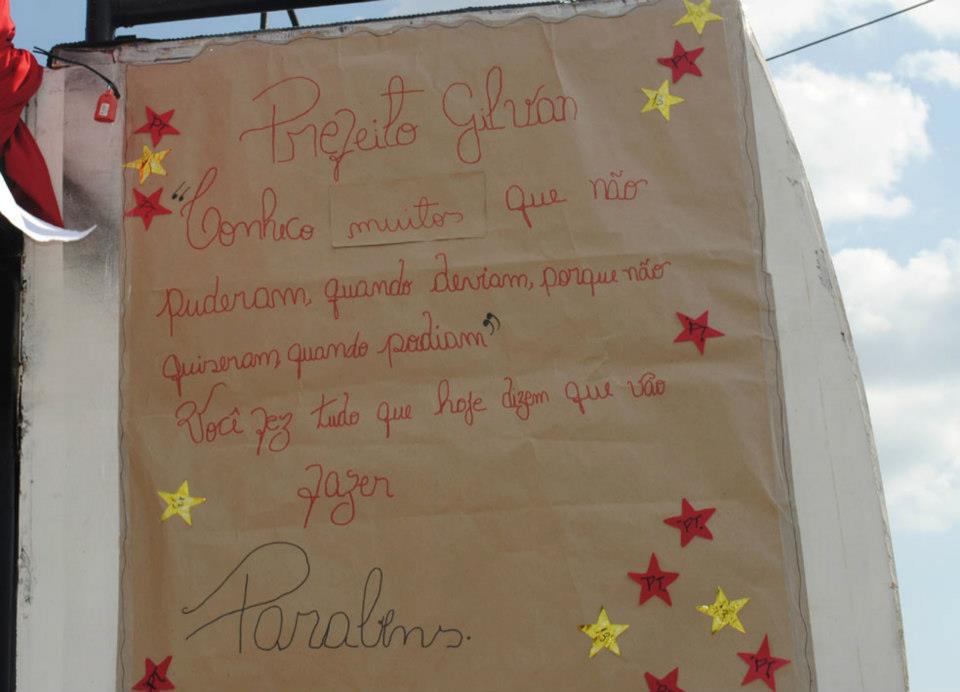 Prefeito Gilvan
"Conheco muitos que não
puderam, quando deviam, porque não
quiseram, quando podiam"
Você fez tudo que hoje dizem que vão
fazer
Parabens.
PT
PT
PT
PT.
PT
PT